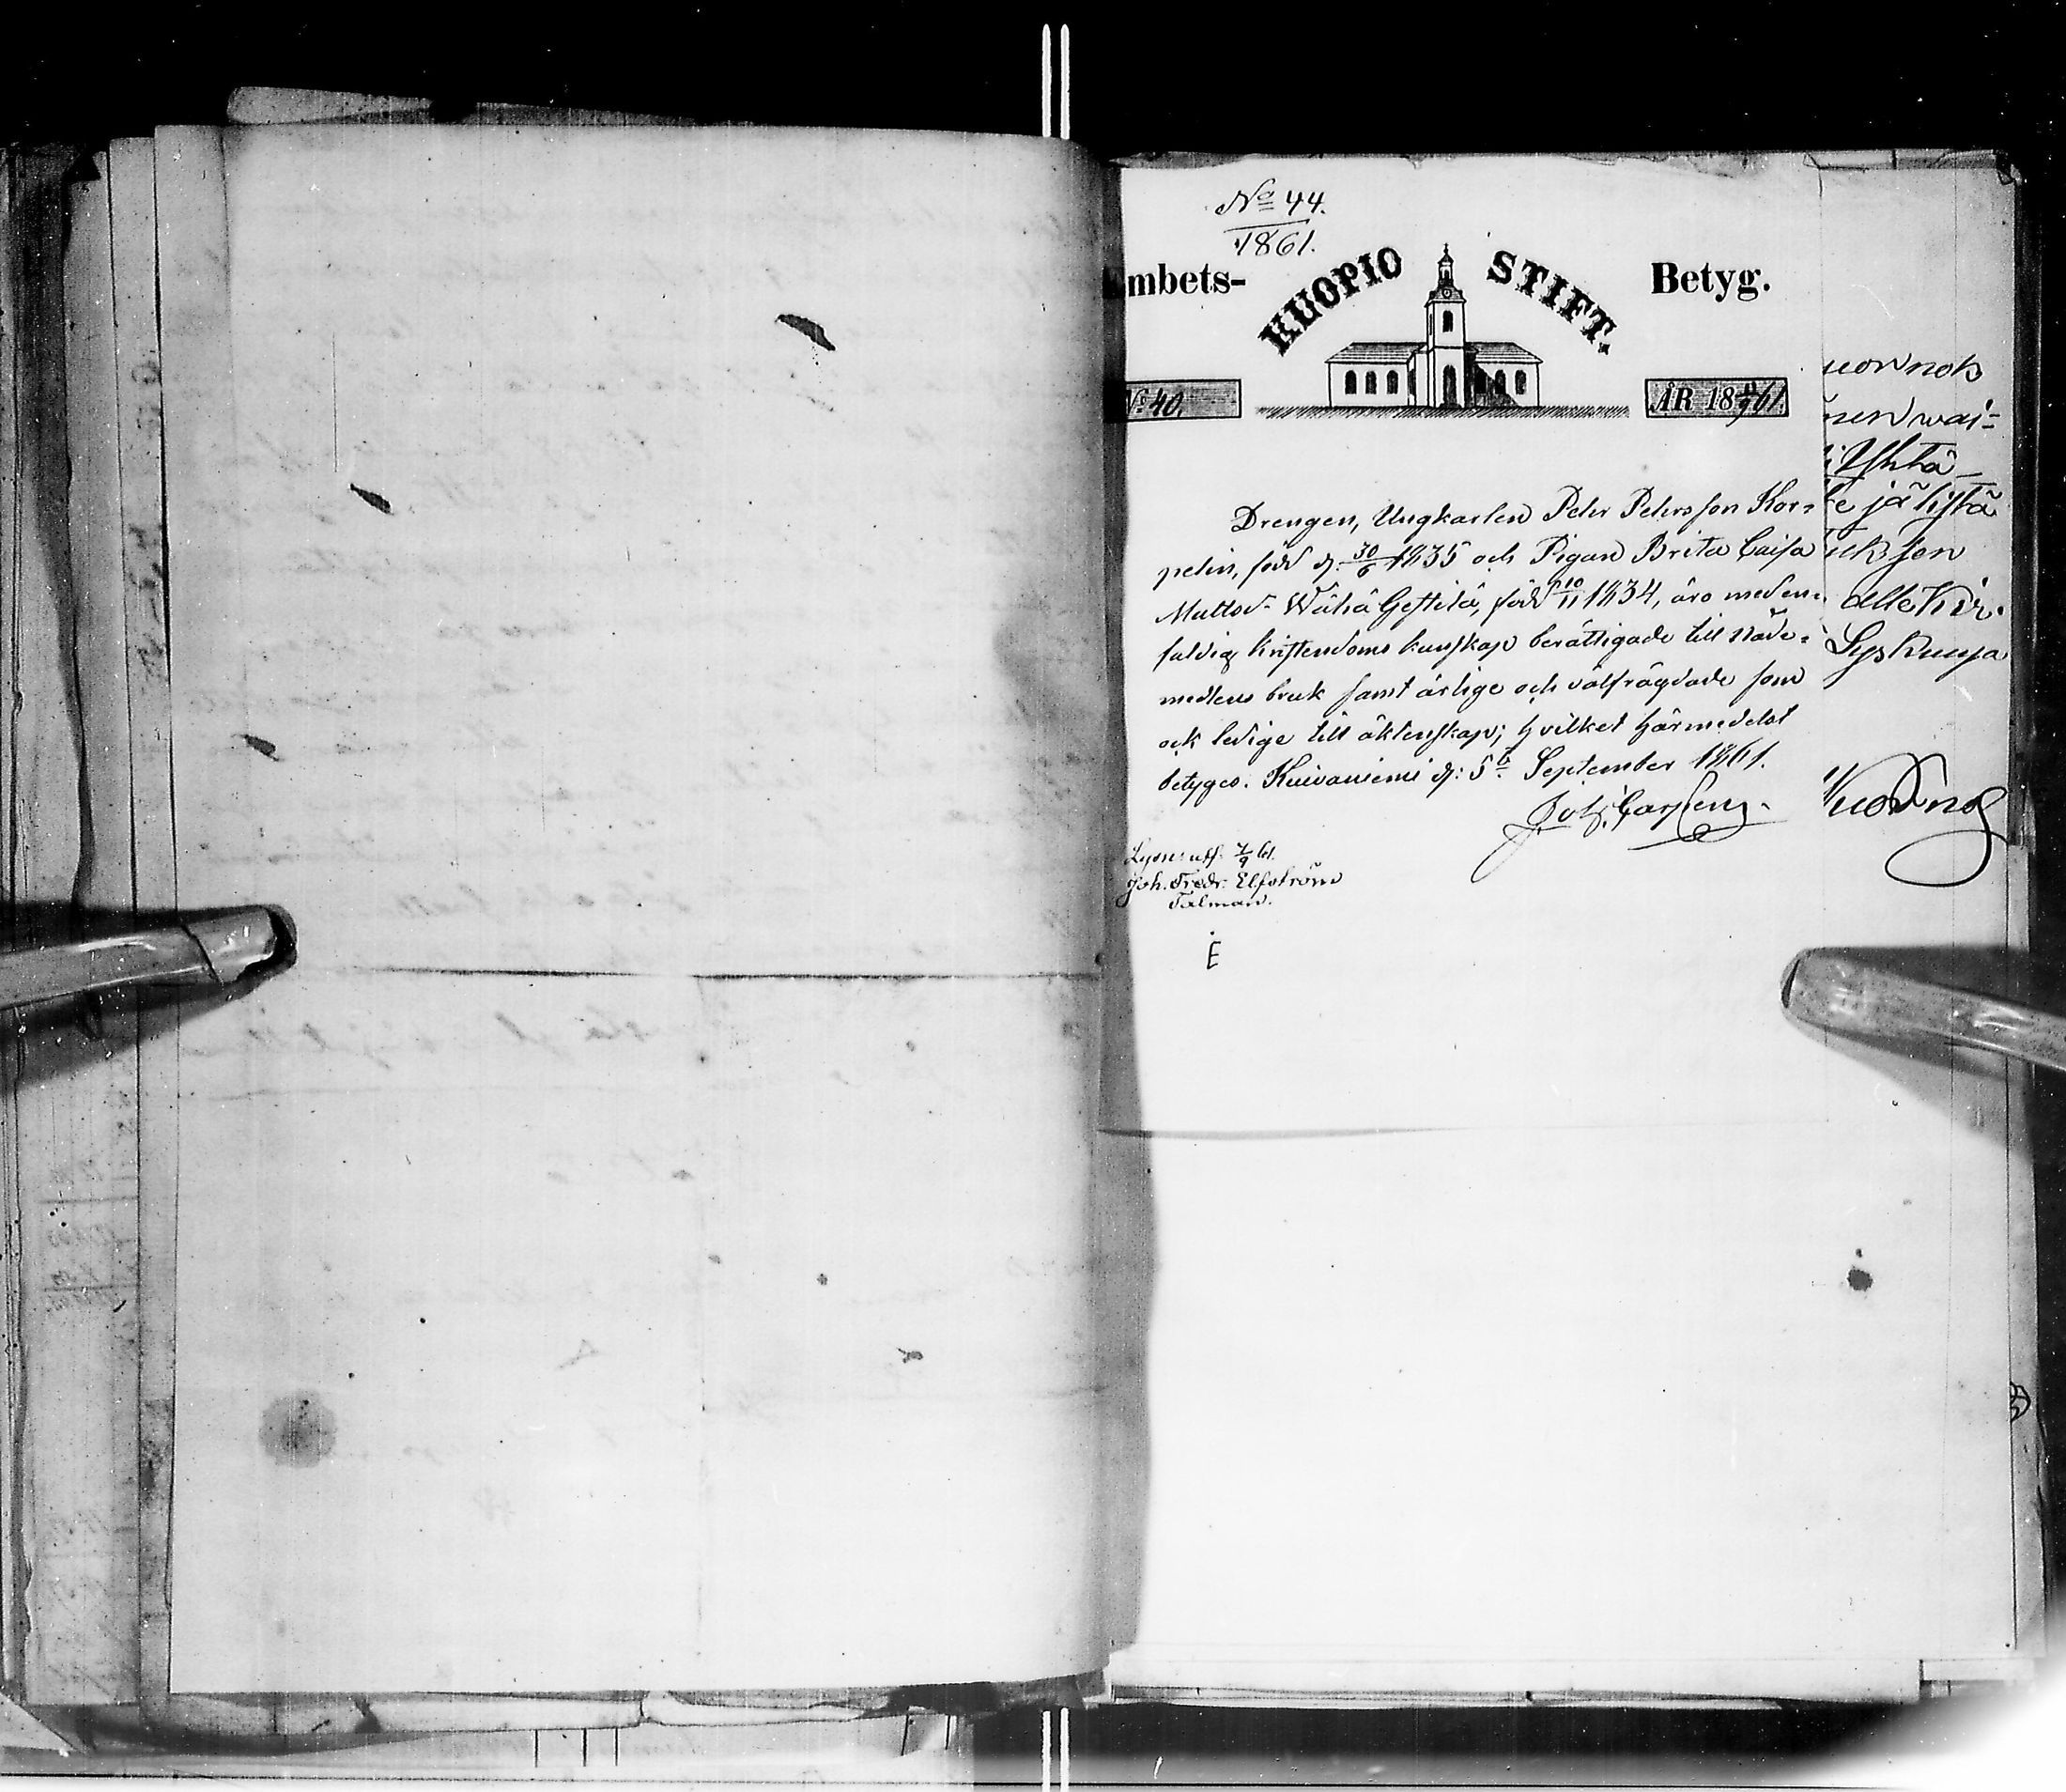 No 44.
1861.
Embets-
KUOPIO STIFT.
Betyg.
No 40.
ÅR 18 61
Drengen, Ungkarlen Petter Petersson Kor-
pelin, född d. 30/6 1835 och Pigan Brita Caisa
Mattsdr Wähä Gestilä, född 10/11 1834, äro med en-
faldig kristendoms kunskap berättigade till Nåde-
medlens bruk samt ärlige och välfrägdade som
ock ledige till äktenskap; hvilket härmedelst
betygas. Kuivaniemi d: 5te September 1861.
Joh. Carlen
Lysn: uff: 7/9 61.
Joh. Fredr. Elfström
Tolman.
E
wai-
Yhtä
alle Kir-